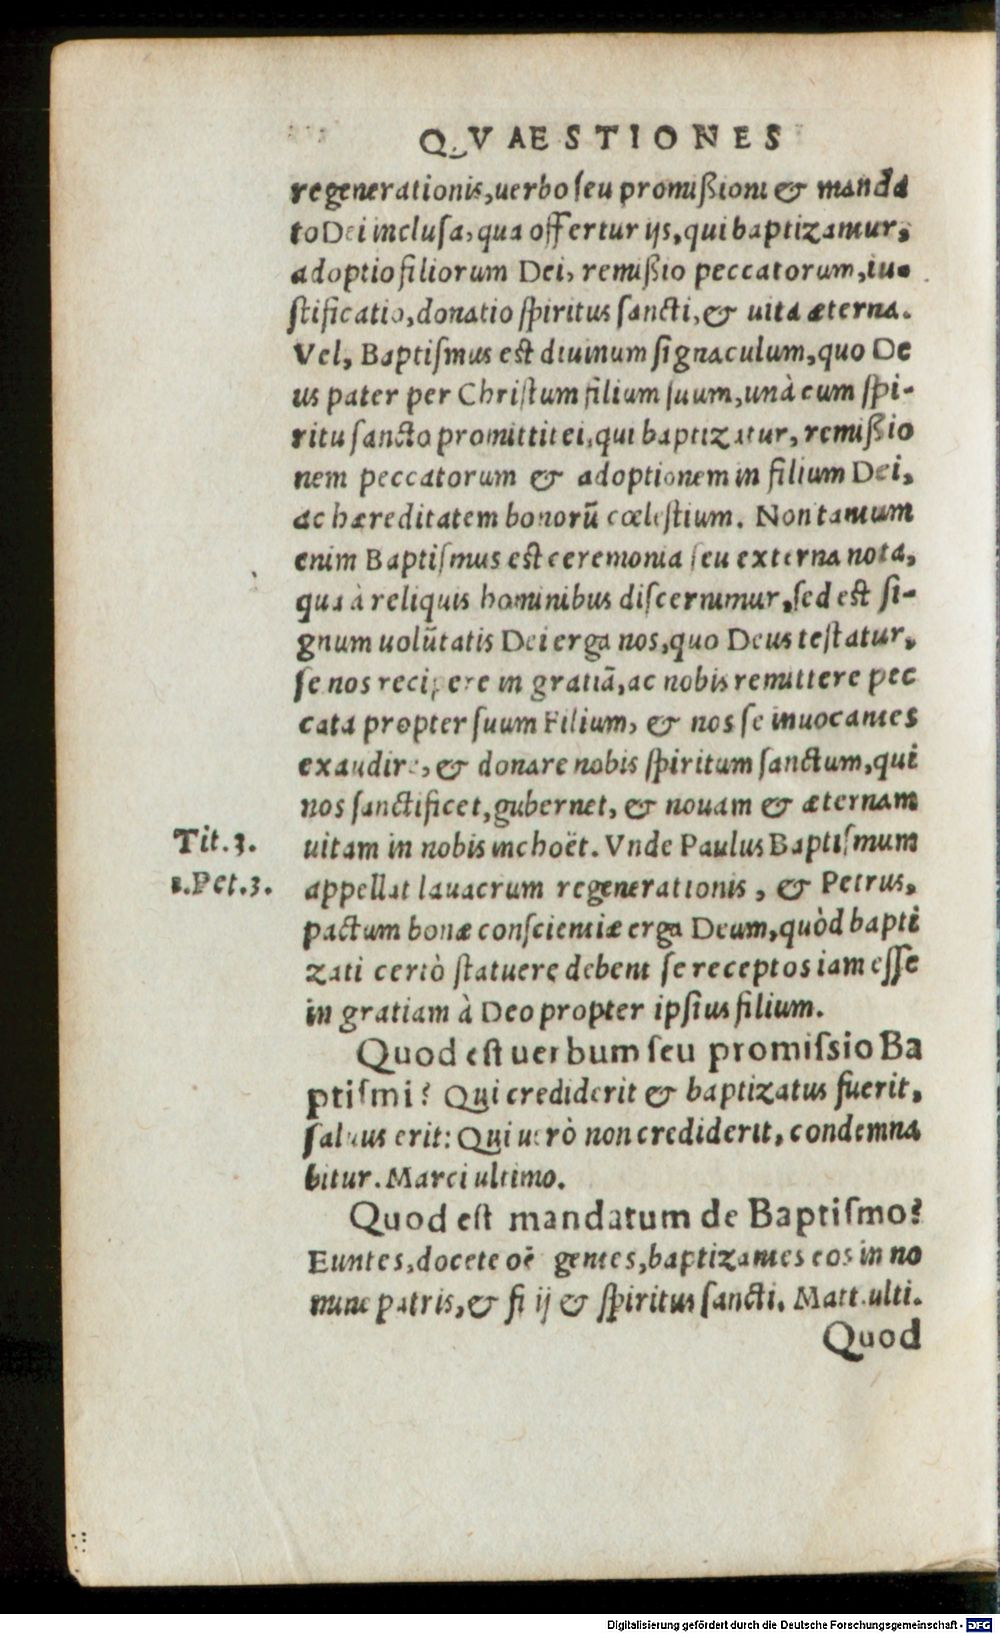 QVAESTIONES
regenerationis, uerbo seu promißioni & manda
to Dei inclusa, qua offertur ijs, qui baptizantur,
adoptio filiorum Dei, remißio peccatorum, iu-
stificatio, donatio spiritus sancti, & uita æterna.
Vel, Baptismus est diuinum signaculum, quo De
us pater per Christum filium suum, unà cum spi-
ritu sancto promittit ei, qui baptizatur, remißio
nem peccatorum & adoptionem in filium Dei,
ac hæreditatem bonorũ cœlestium. Non tantum
enim Baptismus est ceremonia seu externa nota,
qua à reliquis hominibus discernimur, sed est si-
gnum uolũtatis Dei erga nos, quo Deus testatur,
se nos recipere in gratiã, ac nobis remittere pec
cata propter suum Filium, & nos se inuocantes
exaudire, & donare nobis spiritum sanctum, qui
nos sanctificet, gubernet, & nouam & æternam
Tit.3. uitam in nobis inchoët. Vnde Paulus Baptismum
1.Pet.3. appellat lauacrum regenerationis, & Petrus,
pactum bonæ conscientiæ erga Deum, quòd bapti
zati certò statuere debent se receptos iam esse
in gratiam à Deo propter ipsius filium.
Quod est uerbum seu promissio Ba
ptismi? Qui crediderit & baptizatus fuerit,
saluus erit: Qui uerò non crediderit, condemna
bitur. Marci ultimo.
Quod est mandatum de Baptismo?
Euntes, docete oẽ gentes, baptizantes eos in no
mine patris, & fi ij & spiritus sancti. Matt. ulti.
Quod
Digitalisierung gefördert durch die Deutsche Forschungsgemeinschaft - DFG